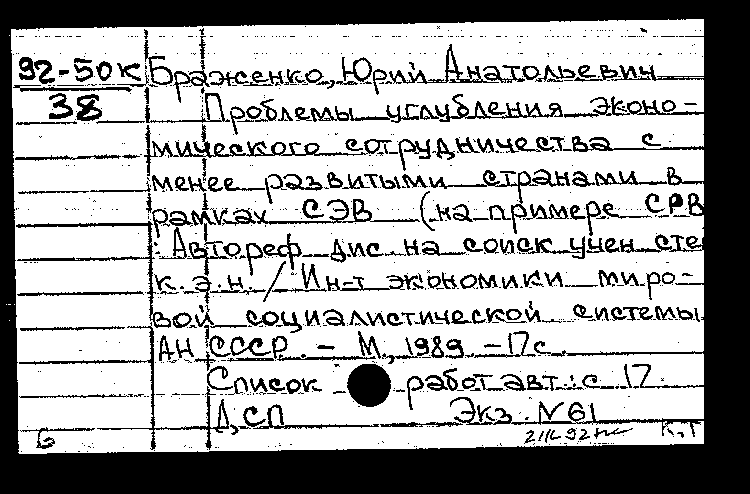 92-50к Браженко, Юрий Анатольевич
38 Проблемы углубления эконо-
мического сотрудничества с
менее развитыми странами в
рамках СЭВ (на примере СРВ
: Автореф дис. на соиск учен сте
к.э.н. / Ин-т экономики миро-
вой социалистической системы
АН СССР. – М, 1989. – 17с.
Список работ авт.: с 17.
ДСП Экз. №61
6 К.Т